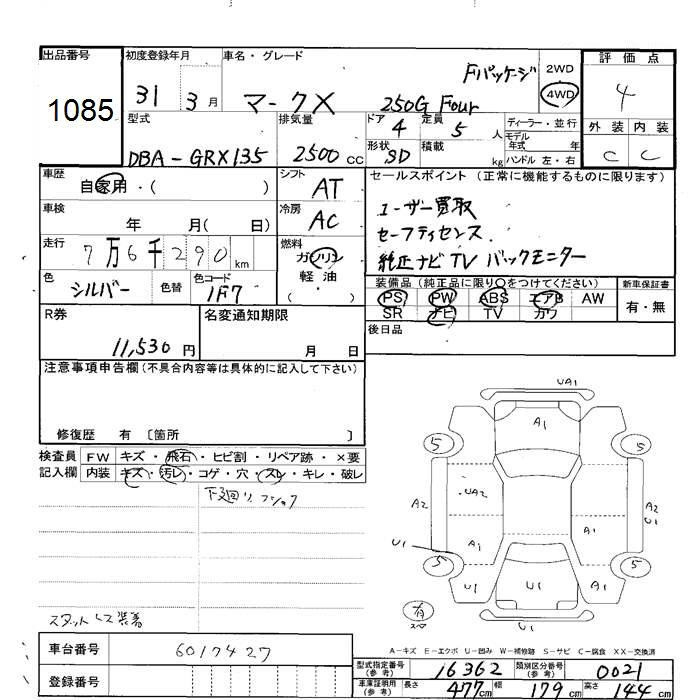 出品番号
1085
初度登録年月
31年3月
車名・グレード
Fパッケージ
マークX 250G Four
2WD
4WD
評価点
4
外装 内装
C C
型式
DBA-GRX135
排気量
2500cc
ドア 4
定員 5人
形状 SD
積載 kg
ディーラー・並行
モデル年式 年
ハンドル 左・右
車歴
自家用・( )
シフト
AT
セールスポイント (正常に機能するものに限ります)
ユーザー買取
セーフティセンス
純正ナビTVバックモニター
車検
年 月( 日)
冷房
AC
走行
7万6千290km
燃料
ガソリン
軽油
( ・ )
色
シルバー
色替
色コード
1F7
装備品(純正品に限り○をつけてください)
PS PW ABS エアB AW
SR ナビ TV カワ
新車保証書
有・無
R券
11,530円
名変通知期限
月 日
後日品
注意事項申告欄(不具合内容等は具体的に記入して下さい)
修復歴 有 〔箇所 〕
検査員記入欄
FW キズ・飛石・ヒビ割・リペア跡・×要
内装 キズ・汚レ・コゲ・穴・スレ・キレ・破レ
下廻り
スタットレス装着
UA1
A1
5 5
A2 UA2 A2 U1
U1 A1 A1
5 5
U1 U1 A1
U1
A-キズ E-エクボ U-凹み W-補修跡 S-サビ C-腐食 XX-交換済
車台番号
6017427
登録番号
型式指定番号(参考) 16362
類別区分番号(参考) 0021
車庫証明用(参考) 長さ 477cm 幅 179cm 高さ 144cm